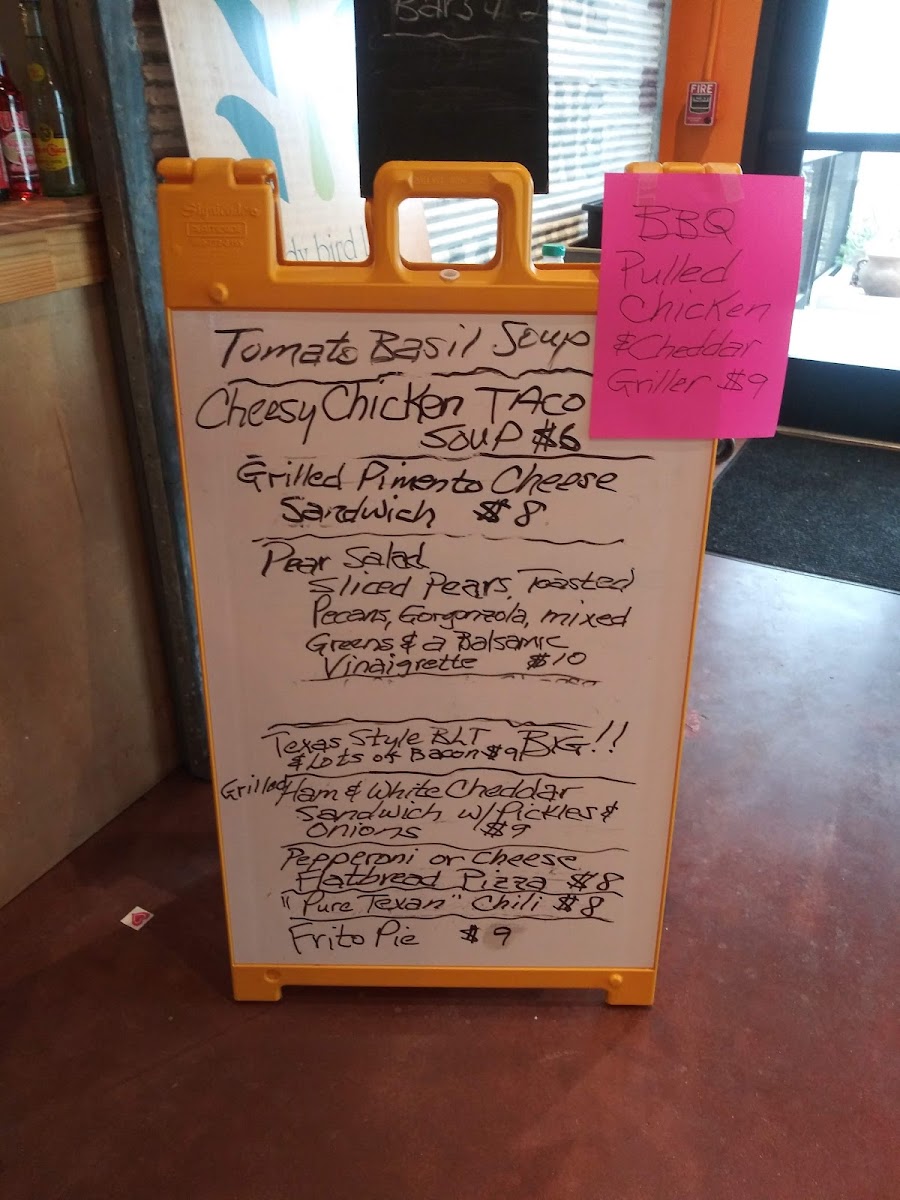 Bars
FIRE
dy bird l
BBQ
Pulled
Chicken
& Cheddar
Griller $9
Tomato Basil Soup
Cheesy Chicken TAco
Soup $6
Grilled Pimento Cheese
Sandwich $8
Pear Salad
Sliced Pears, Toasted
Pecans, Gorgonzola, mixed
Greens & a Balsamic
Vinaigrette $10
Texas Style BLT
& Lots of Bacon $9 BIG!!
Grilled Ham & White Cheddar
Sandwich w/ Pickles &
Onions $9
Pepperoni or Cheese
Flatbread Pizza $8
"Pure Texan" Chili $8
Frito Pie $9